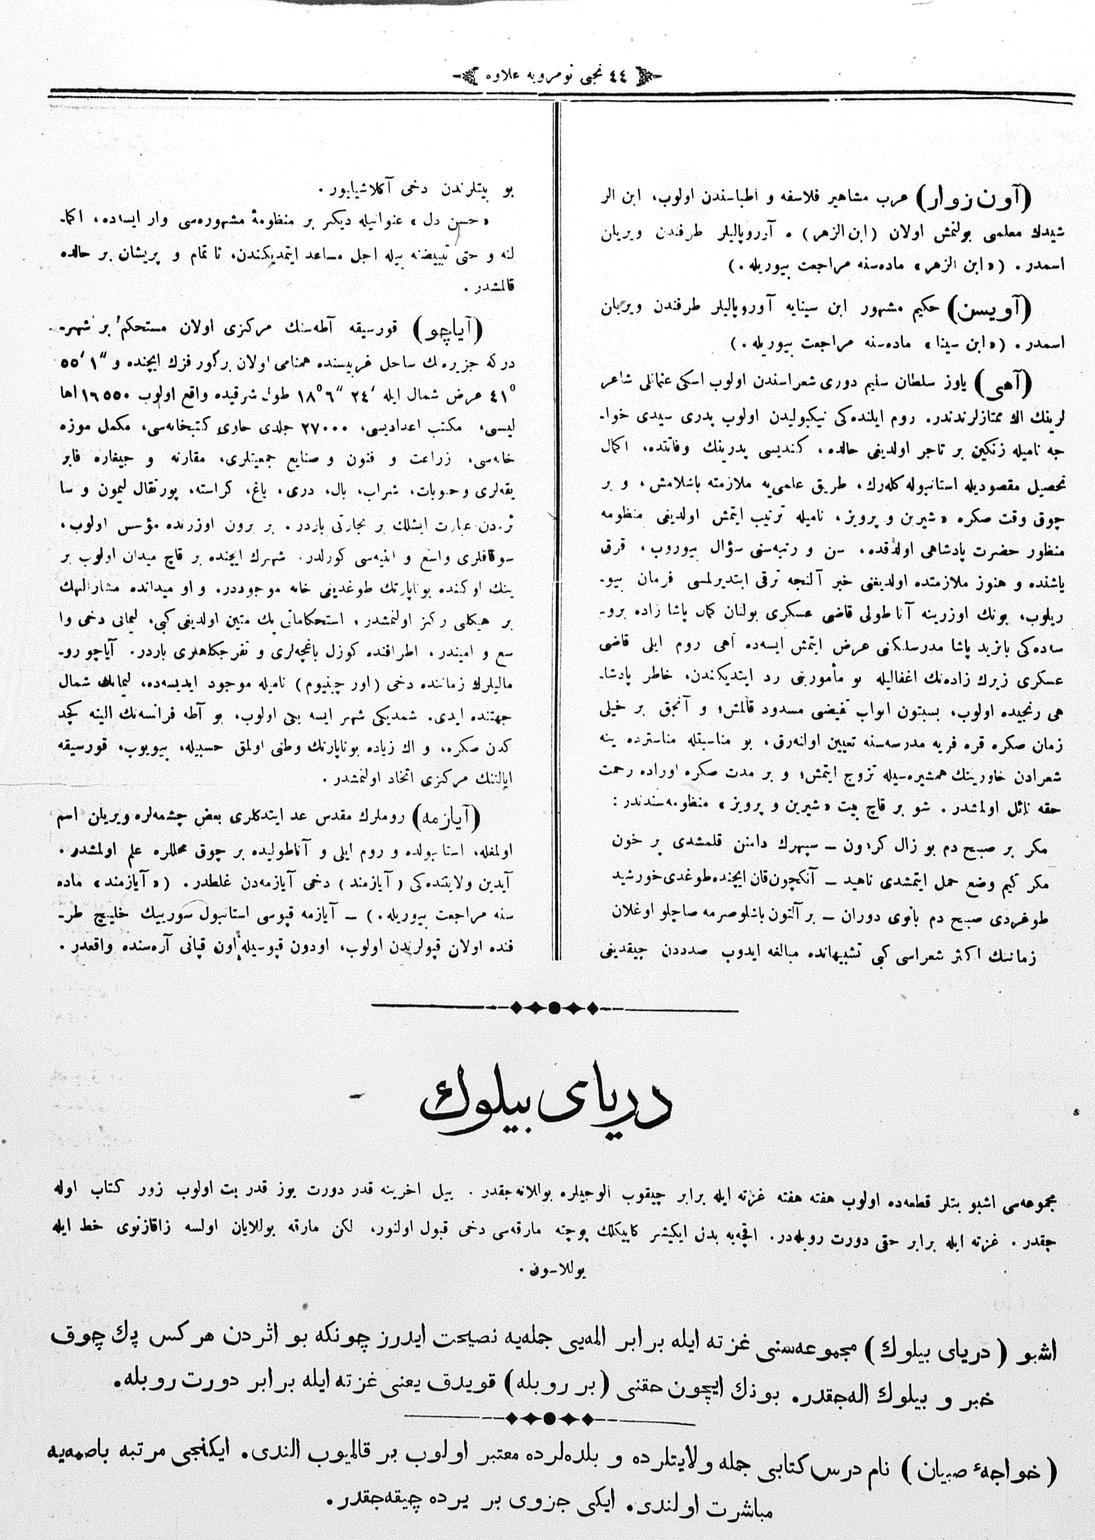 ٤٤ نجی نومرویه علاوه
(آون زوار) عرب مشاهیر فلاسفه و اطباسندن اولوب، ابن الر
شیدك معلمی بولنمش اولان (ابن الزهر) ه آوروپالیلر طرفندن ویریلان
اسمدر. («ابن الزهر» ماده‌سنه مراجعت بیوریله.)
(آویسن) حکیم مشهور ابن سینایه آوروپالیلر طرفندن ویریلان
اسمدر. («ابن سینا» ماده‌سنه مراجعت بیوریله.)
(آهی) یاوز سلطان سلیم دوری شعراسندن اولوب اسکی عثمانلی شاعر
لرینك اك ممتازلرندندر. روم ایلنده‌کی نیکبولیدن اولوب پدری سیدی خوا-
جه نامیله زنکین بر تاجر اولدیغی حالده، کندیسی پدرینك وفاتنده، اکمال
تحصیل مقصودیله استانبوله کله‌رك، طریق علمی‌یه ملازمته باشلامش، و بر
چوق وقت صکره «شیرین و پرویز» نامیله ترتیب ایتمش اولدیغی منظومه
منظور حضرت پادشاهی اولدقده، سن و رتبه‌سنی سؤال بیوروب، قرق
یاشنده و هنوز ملازمتده اولدیغنی خبر آلنجه ترقی ایتدیرلمسی فرمان بیو-
ریلوب، بونك اوزرینه آناطولی قاضی عسکری بولنان کمال پاشا زاده برو-
سه‌ده‌کی بایزید پاشا مدرسه‌لکنی عرض ایتمش ایسه‌ده آهی روم ایلی قاضی
عسکری زیرك زاده‌نك اغفالیله بو مأموریتی رد ایتدیکندن، خاطر پادشا-
هی رنجیده اولوب، بسبتون ابواب تفیضی مسدود قالمش؛ و آنجق بر خیلی
زمان صکره قره فریه مدرسه‌سنه تعیین اولنه‌رق، بو مناسبتله مناسترده ینه
شعرادن خاورینك همشیره‌سیله تزوج ایتمش؛ و بر مدت صکره اوراده رحمت
حقه نائل اولمشدر. شو بر قاچ بیت «شیرین و پرویز» منظومه‌سندندر:
مکر بر صبح دم بو زال کردون — سپهرك دامنن قلمشدی پر خون
مکر کیم وضع حمل ایتمشدی ناهید — آنکچون قان ایچنده طوغدی خورشید
طوغردی صبح دم بانوی دوران — بر آلتون باشلو صرمه صاچلو اوغلان
زمانینك اکثر شعراسی کبی تشبیهانده مبالغه ایدوب صدددن چیقدیغی
بو بیتلرندن دخی آکلاشیلیور.
«حسن دل» عنوانیله دیکر بر منظومۀ مشهوره‌سی وار ایسه‌ده، اکما-
لنه و حتی تبییضنه بیله اجل مساعد ایتمدیکندن، ناتمام و پریشان بر حالده
قالمشدر.
(آیاچو) قورسیقه آطه‌سنك مرکزی اولان مستحکم بر شهر-
درکه جزیره‌نك ساحل غربیسنده همنامی اولان برکورفزك ایچنده و "۱ '۵۵
°٤١ عرض شمالی ایله '٢٤ "٦ °١٨ طول شرقیده واقع اولوب ١٦٥٥٠ اها
لیسی، مکتب اعدادیسی، ٢٧٠٠٠ جلدی حاوی کتبخانه‌سی، مکمل موزه
خانه‌سی، زراعت و فنون و صنایع جمعیتلری، مقارنه و جیغاره فابر
یقه‌لری و حبوبات، شراب، بال، دری، یاغ، کراسته، پورتقال لیمون و سا
ئره‌دن عبارت ایشلك بر تجارتی باردر. بر برون اوزرنده مؤسس اولوب،
سوقاقلری واسع و ابنیه‌سی کوزلدر. شهرك ایچنده بر قاچ میدان اولوب بر
ینك اوکنده بوناپارتك طوغدیغی خانه موجوددر. و او میدانده مشارالیهك
بر هیکلی رکز اولنمشدر. استحکاماتی پك متین اولدیغی کبی، لیمانی دخی وا
سع و امیندر. اطرافنده کوزل باغچه‌لری و تفرجکاهلری باردر. آیاچو رو-
مالیلرك زماننده دخی (اورچینیوم) نامیله موجود ایدیسه‌ده، لیمانك شمال
جهتنده ایدی. شمدیکی شهر ایسه یکی اولوب، بو آطه فرانسه‌نك الینه کچد
کدن صکره، و اك زیاده بوناپارتك وطنی اولمق حسبیله، بیویوب، قورسیقه
ایالتنك مرکزی اتخاذ اولنمشدر.
(آیازمه) روملرك مقدس عد ایتدکلری بعض چشمه‌لره ویریلان اسم
اولمغله، استانبولده و روم ایلی و آناطولیده بر چوق محللره علم اولمشدر.
آیدین ولایتنده‌کی (آیازمند) دخی آیازمه‌دن غلطدر. («آیازمند» ماده
سنه مراجعت بیوریله.) — آیازمه قپوسی استانبول سورینك خلیج طر-
فنده اولان قپولریندن اولوب، اودون قپوسیله اون قپانی آره‌سنده واقعدر.
دریای بیلوك
مجموعه‌سی اشبو بتلر قطعه‌ده اولوب هفته هفته غزته ایله برابر چیقوب الوچیلره یوللانه‌جقدر. ییل اخرینه قدر دورت یوز قدر بت اولوب زور کتاب اوله
جقدر. غزته ایله برابر حقی دورت روبله‌در. اقچه‌یه بدل ایکیشر کاپیکلك پوچته مارقه‌سی دخی قبول اولنور، لکن مارقه یوللایان اولسه زاقازنوی خط ایله
یوللاسون.
اشبو (دریای بیلوك) مجموعه‌سنی غزته ایله برابر المه‌یی جمله‌یه نصیحت ایدرز چونکه بو اثردن هرکس پك چوق
خبر و بیلوك اله‌جقدر. بونك ایچون حقنی (بر روبله) قویدق یعنی غزته ایله برابر دورت روبله.
(خواجهٔ صبیان) نام درس کتابی جمله ولایتلرده و بلده‌لرده معتبر اولوب بر قالمیوب الندی. ایکنجی مرتبه باصمه‌یه
مباشرت اولندی. ایکی جزوی بر یرده چیقه‌جقدر.